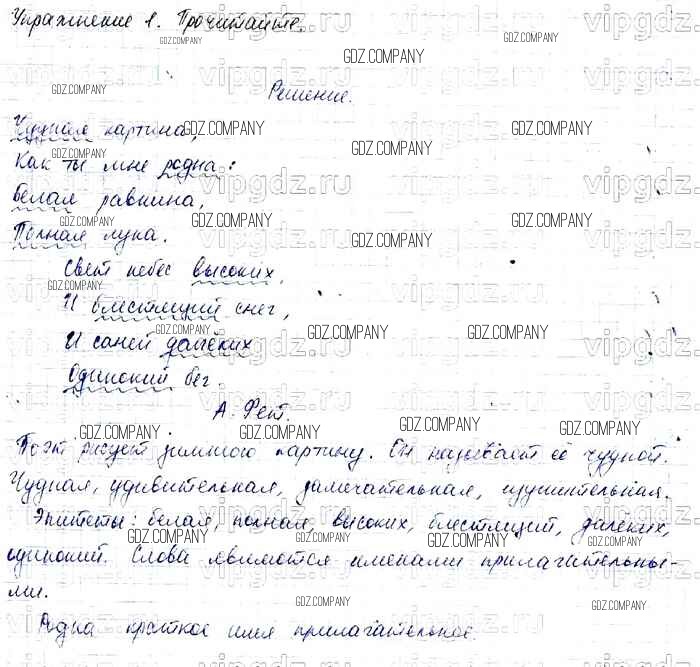 Упражнение 1. Прочитайте.
Решение.
Чудная картина,
Как ты мне родна:
Белая равнина,
Полная луна.
Свет небес высоких,
И блестящий снег,
И саней далёких
Одинокий бег.
А. Фет.
Поэт рисует зимнюю картину. Он называет её чудной.
Чудная, удивительная, замечательная, изумительная.
Эпитеты: белая, полная, высоких, блестящий, далёких,
одинокий. Слова являются именами прилагательны-
ми.
Родна краткое имя прилагательное.